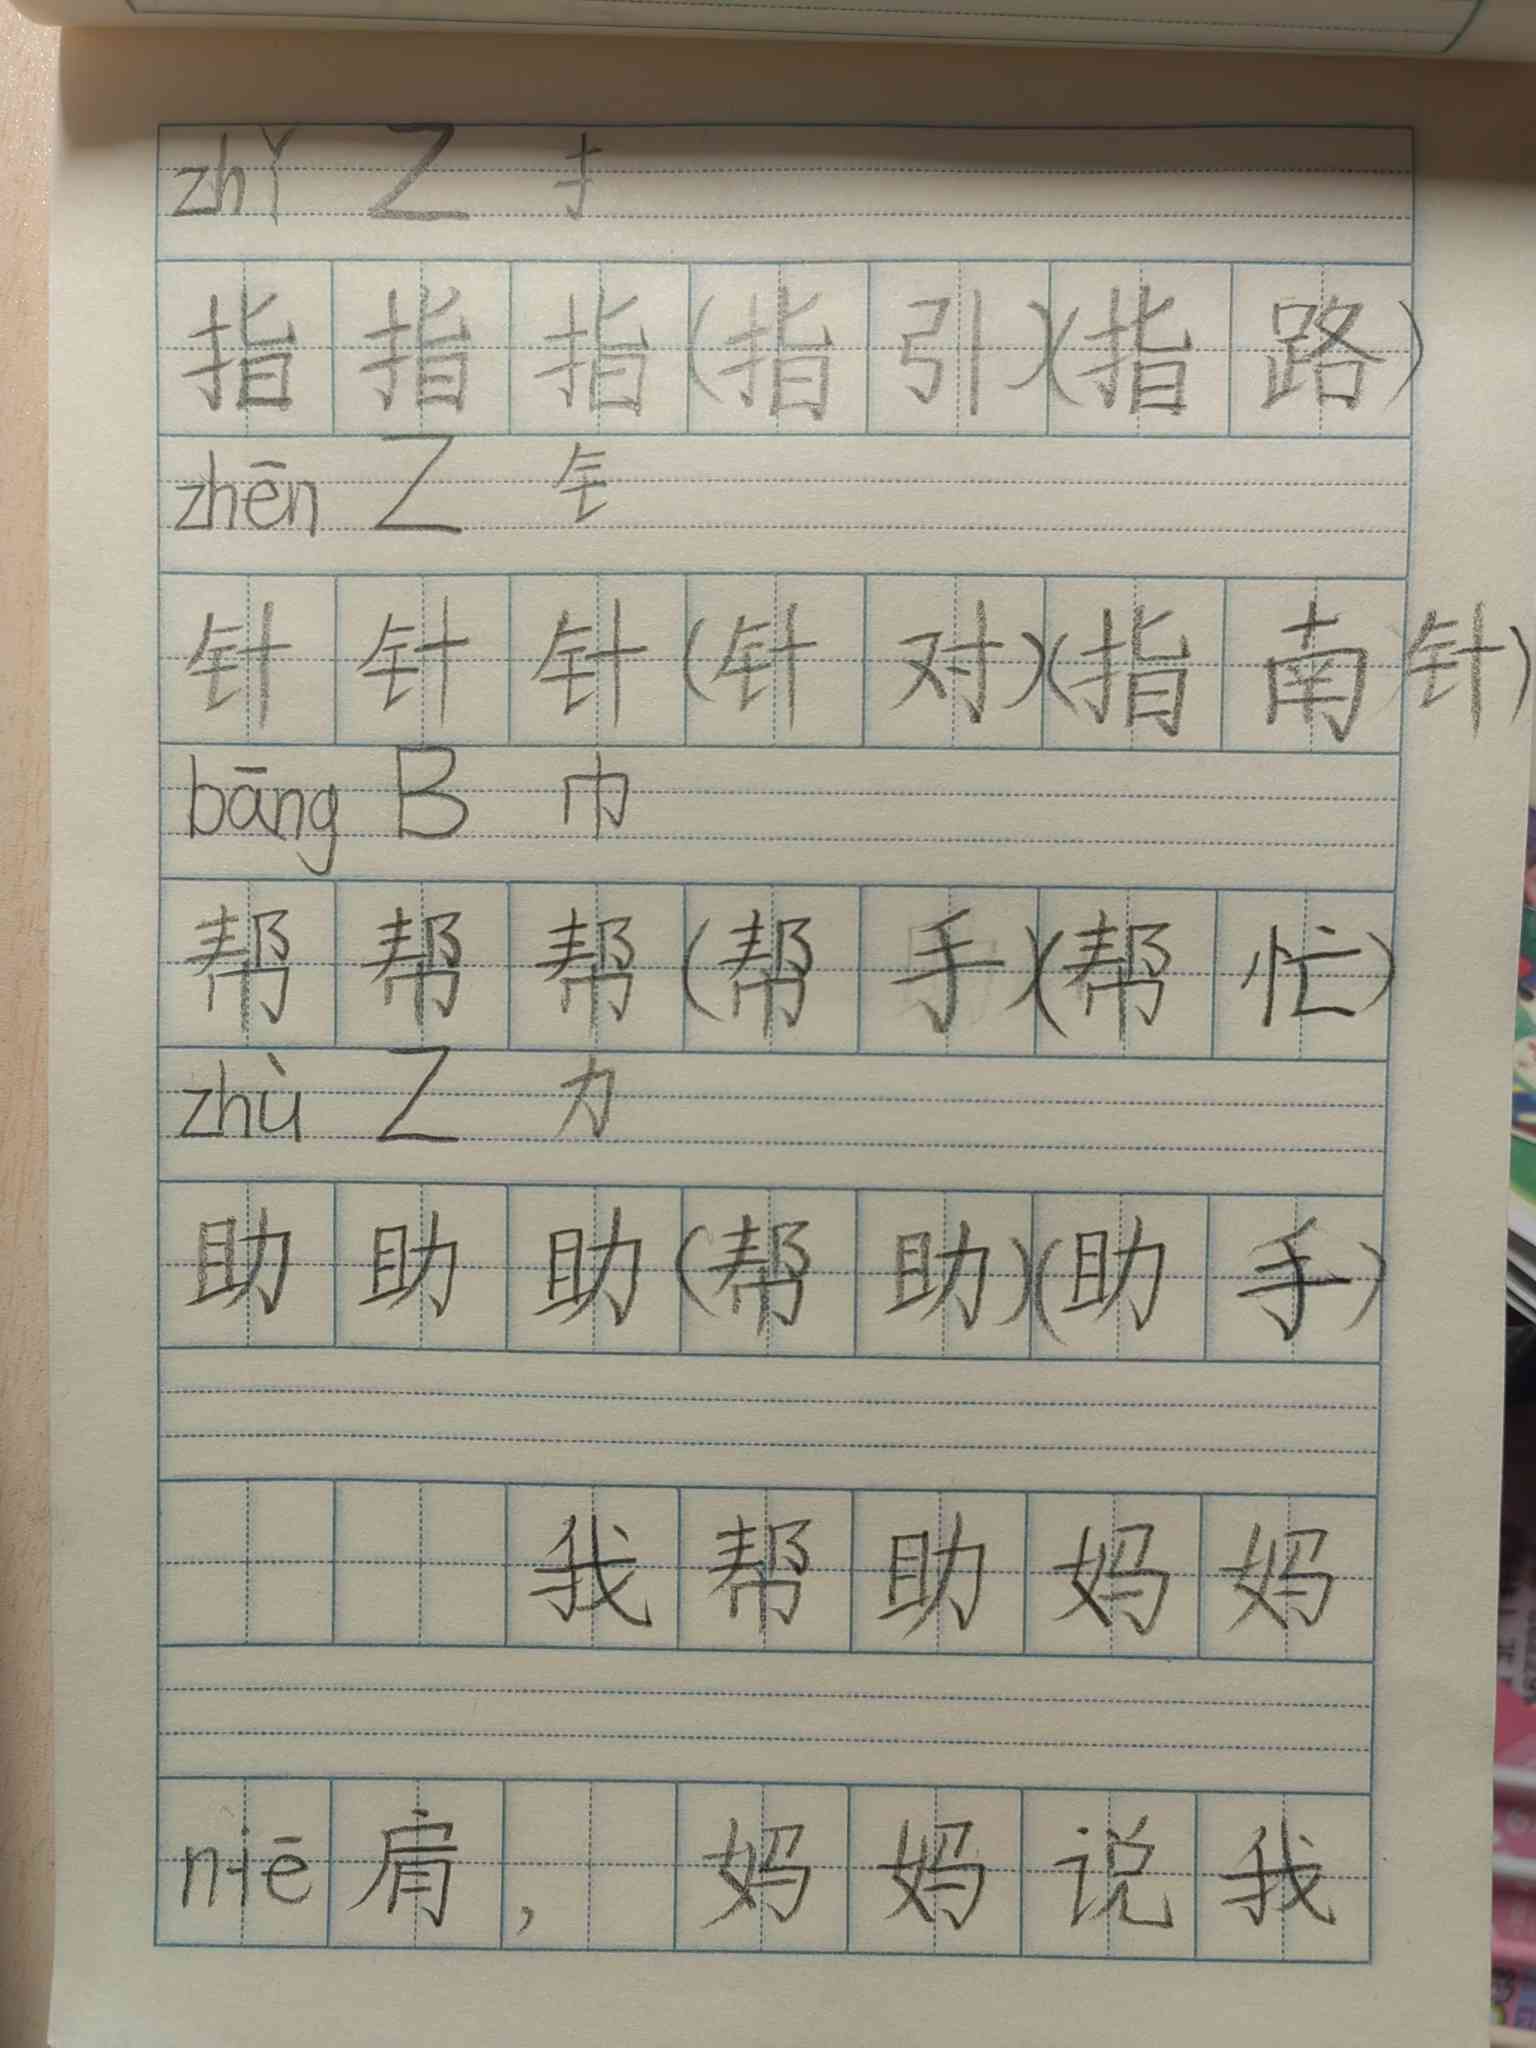 zhǐ Z 扌
指指指(指引)(指路)
zhēn Z 钅
针针针(针对)(指南针)
bāng B 巾
帮帮帮(帮手)(帮忙)
zhù Z 力
助助助(帮助)(助手)
我帮助妈妈
niē肩，妈妈说我